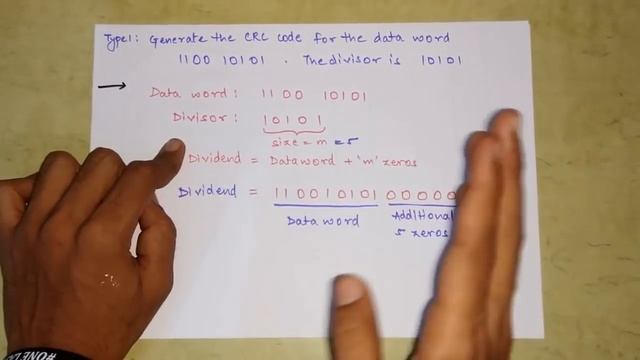 Type1: Generate the CRC code for the data word
1100 10101 . The divisor is 10101
Data word : 1100 10101
Divisor : 10101
size = m = 5
Dividend = Dataword + 'm' zeros
Dividend = 110010101 00000
Data word Additional
5 zeros